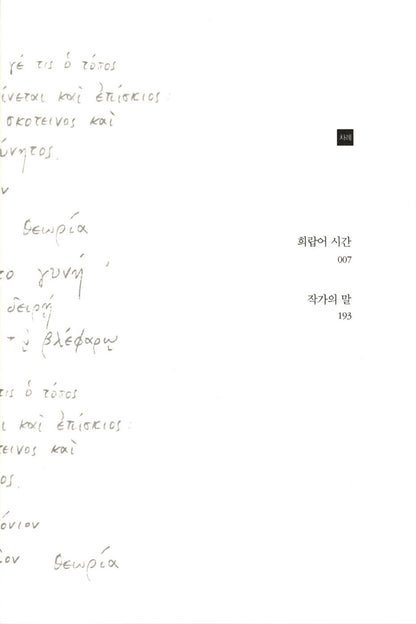 γέ τις ὁ τόπος
ίνεται καὶ ἐπίσκιος:
σκοτεινος καὶ
ύνητος.
ν
θεωρία
το γυνή
δειρῇ
βλέφαρῳ
τις ὁ τόπος
ι καὶ ἐπίσκιος:
τεινος καὶ
ος.
όνιον
ίον θεωρία
차례
희랍어 시간
007
작가의 말
193